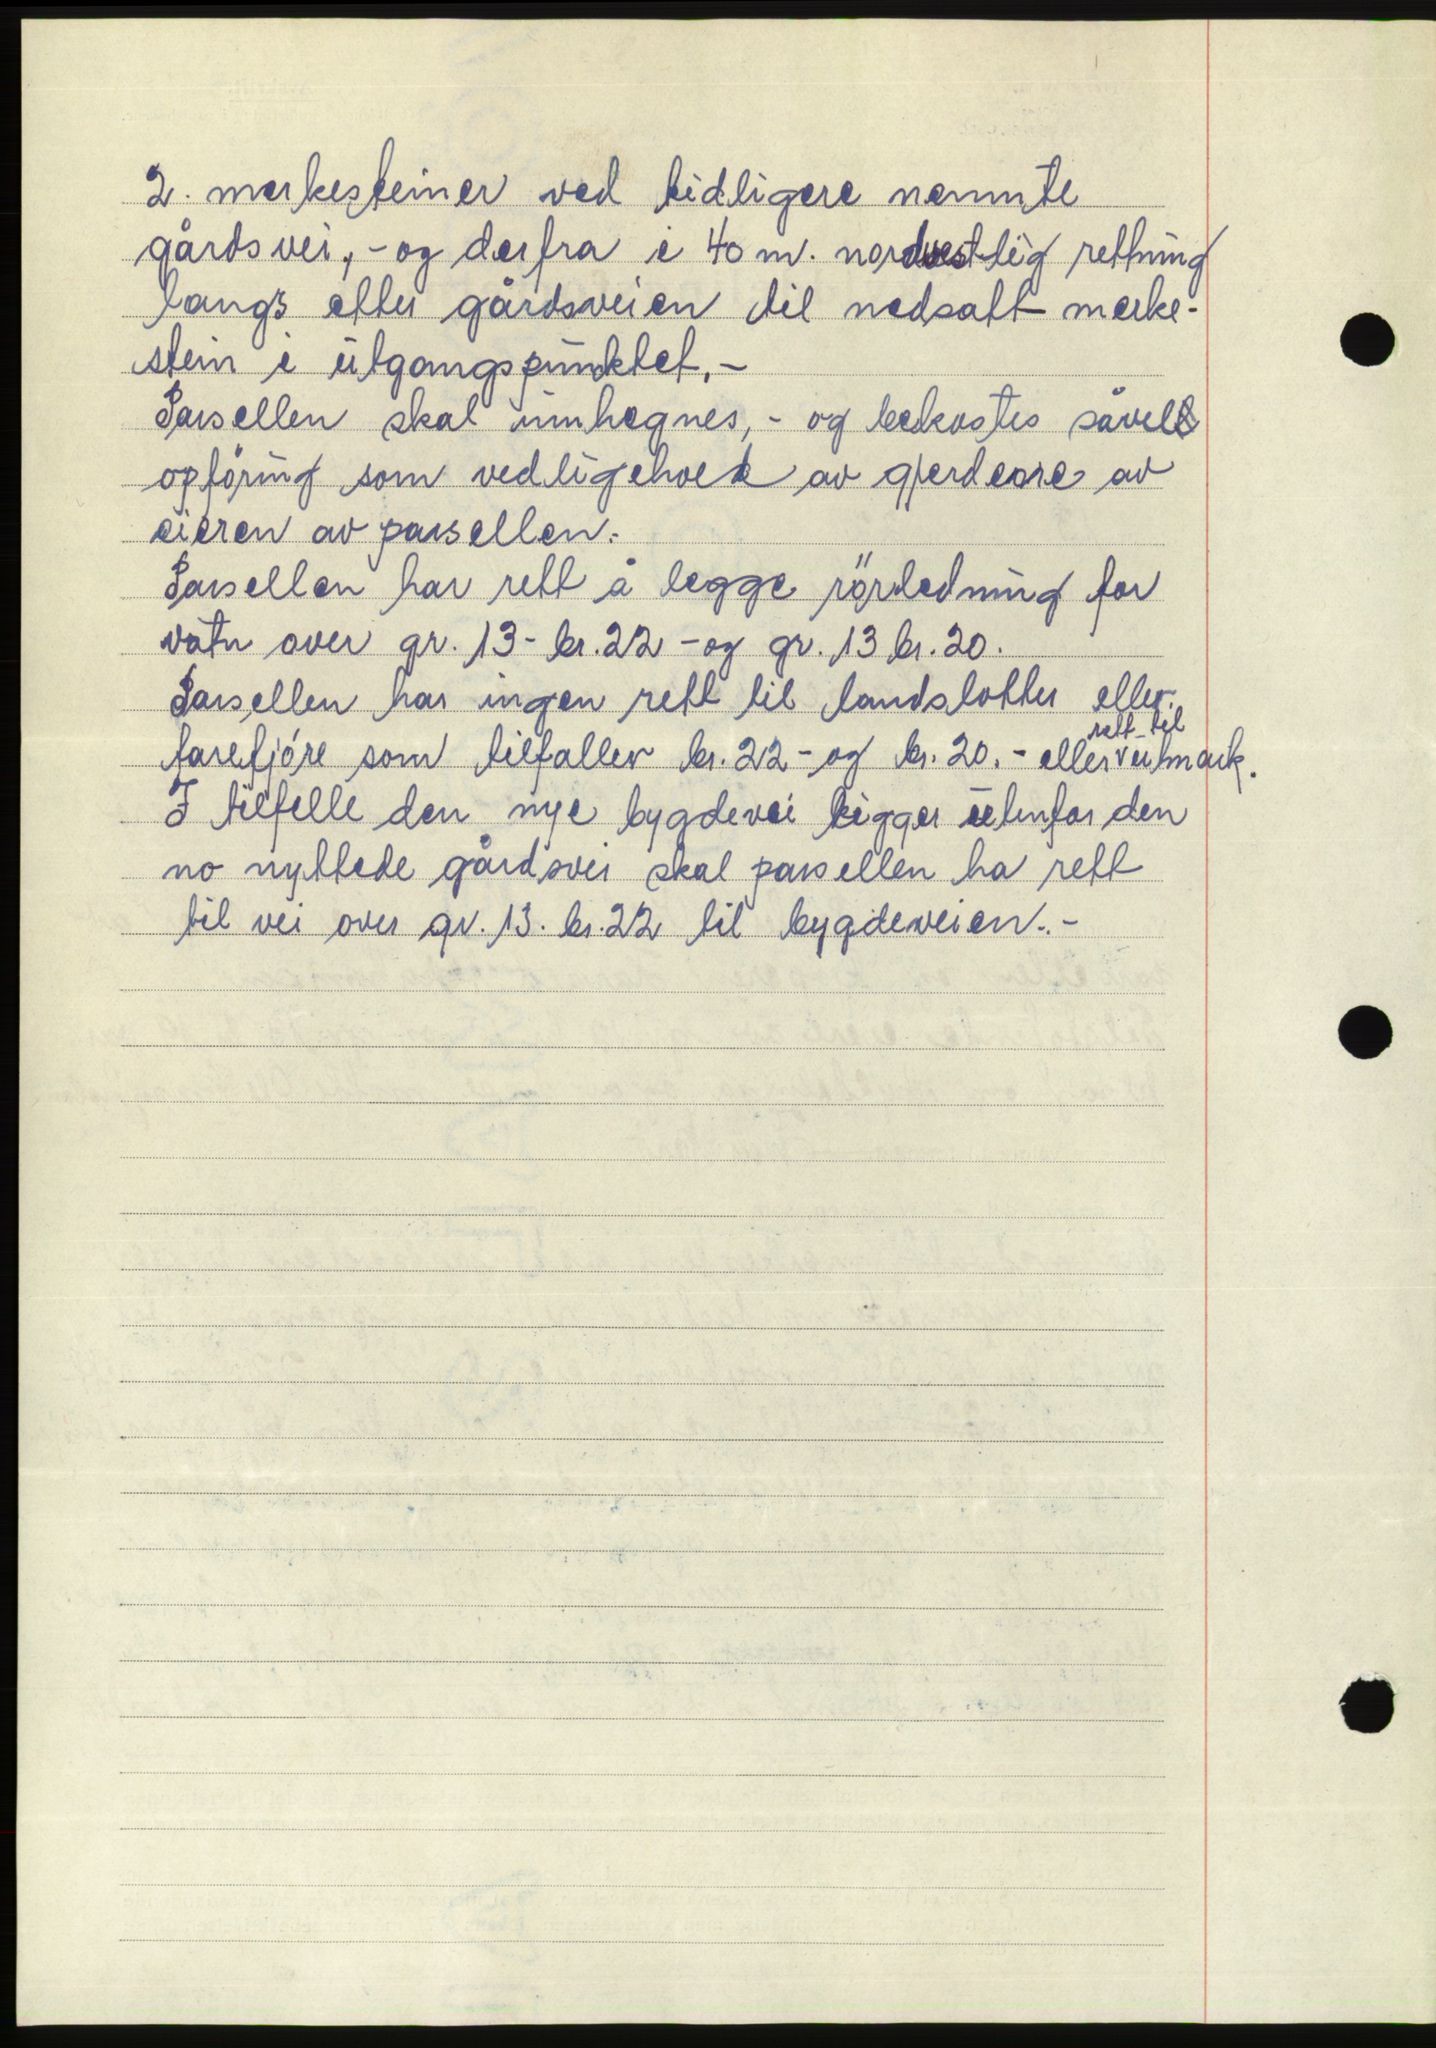 2. merkesteiner ved tidligere nemnte
gårdsvei, - og derfra i 40 m. nordvestlig rettning
langs etter gårdsveien til nedsatt merke-
stein i utgangspunktet. -
Parsellen skal innhegnes, - og bekostes såvel
opföring som vedligehold av gjerdene av
eieren av parsellen.
Parsellen har rett å legge rörledning for
vatn over gr. 13 - br. 22 - og gr. 13 br. 20.
Parsellen har ingen rett til landslotter eller
rett til
tarefjöre som tilfaller br. 22 - og br. 20. - eller utmark.
I tilfelle den nye bygdevei ligger utenfor den
no nyttede gårdsvei skal parsellen ha rett
til vei over gr. 13. br. 22 til bygdeveien. -